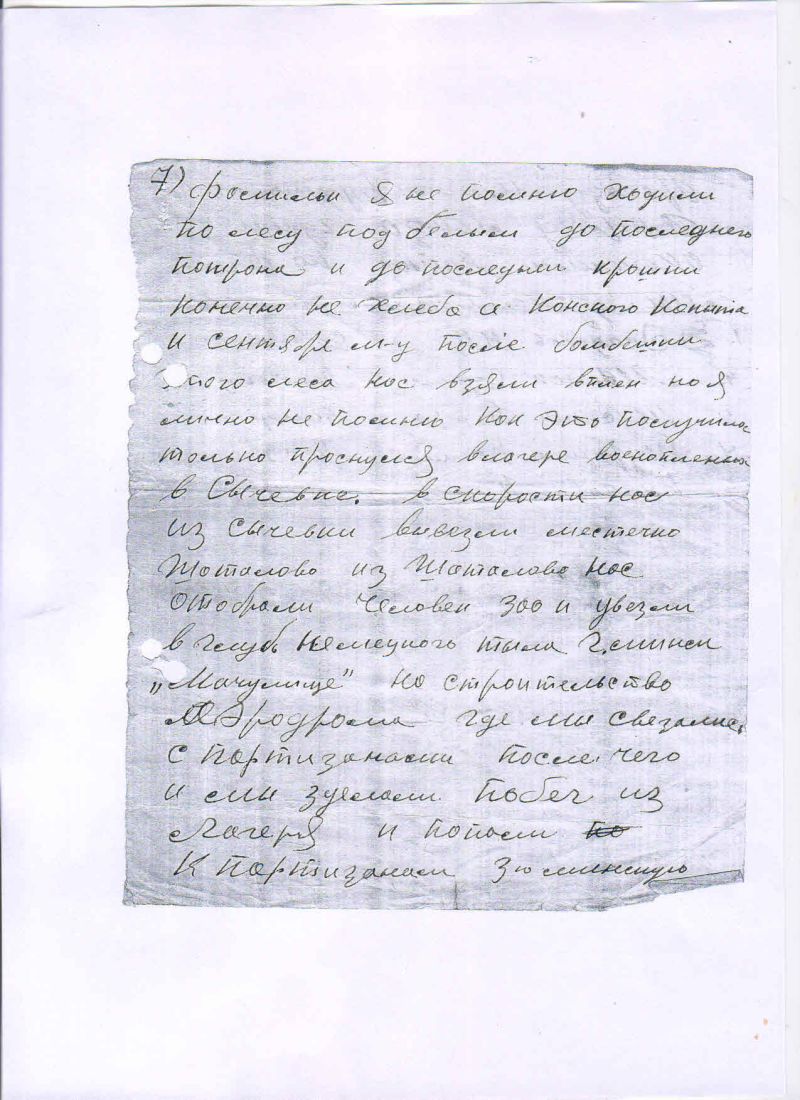 7) фамильи я не помню ходили
по лесу под белым до последнего
потрона и до последньй крошки
конечно не хлеба а конского копыта
и сентябре м-у после бомбёшки
этого леса нас взяли вплен но я
лично не помню как это получилась
только проснулся влагере военопленных
в Сычевке. в скорости нас
из Сычевки вывезли местечко
Шаталово из Шаталово нас
отобрали человек 300 и увезли
в глубь немецкого тыла г. минск
„Мачулище" на строительство
Аэродрома где мы свезались
с партизанами после чего
и мы зделали побег из
Лагеря и попали
к партизанам 3ю минскую